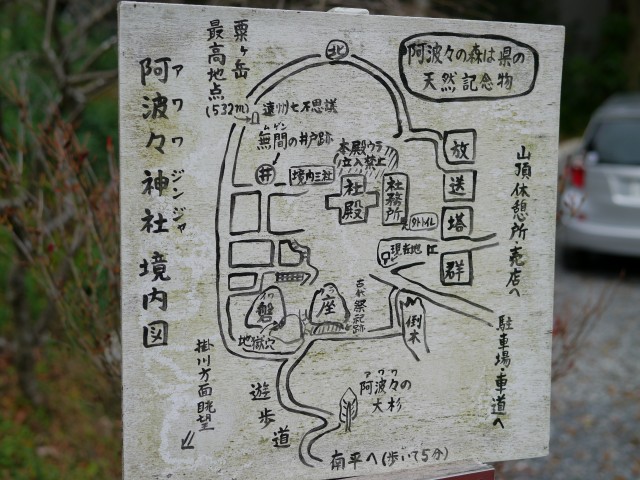 阿波々神社境内図
アワワジンジャ
粟ヶ岳
最高地点
(532m)
北
阿波々の森は県の
天然記念物
遠州七不思議
ムゲン
無間の井戸跡
井
境内三社
本殿ウラ
立入禁止
社殿
社務所
外トイレ
現在地
放
送
塔
群
山頂休憩所・売店へ
駐車場・車道へ
イワ
磐
クラ
座
古代祭祀跡
地獄穴
倒木
掛川方面眺望
遊歩道
アワワ
阿波々の
大杉
南平へ(歩いて5分)